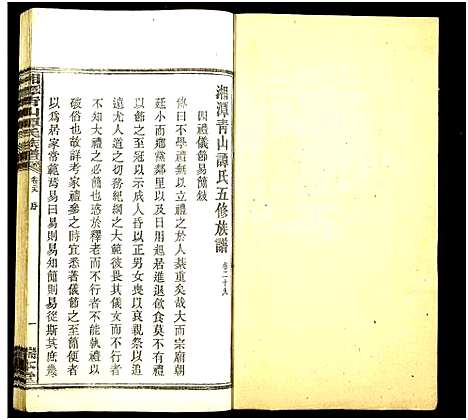 湘潭青山譚氏五修族譜 卷二十九
四禮儀節易簡敘
傳曰不學禮無以立禮之於人綦重矣哉大而宗廟朝
廷小而鄉黨無不有禮以及日用起居進退飲食莫不有
節以節之冠以示成人昏以正男女喪以哀親祭以追
遠尤人道之切務紀綱之大範彼畏其儀文而不行者
不知大禮之必簡也惑於釋老而不行者不能執禮以
破俗也故詳考家禮參之時宜悉著儀節之至簡便者
以為居家常範焉易曰易則易知簡則易從斯其庶幾
湘潭青山譚氏族譜
卷廿九 序
一